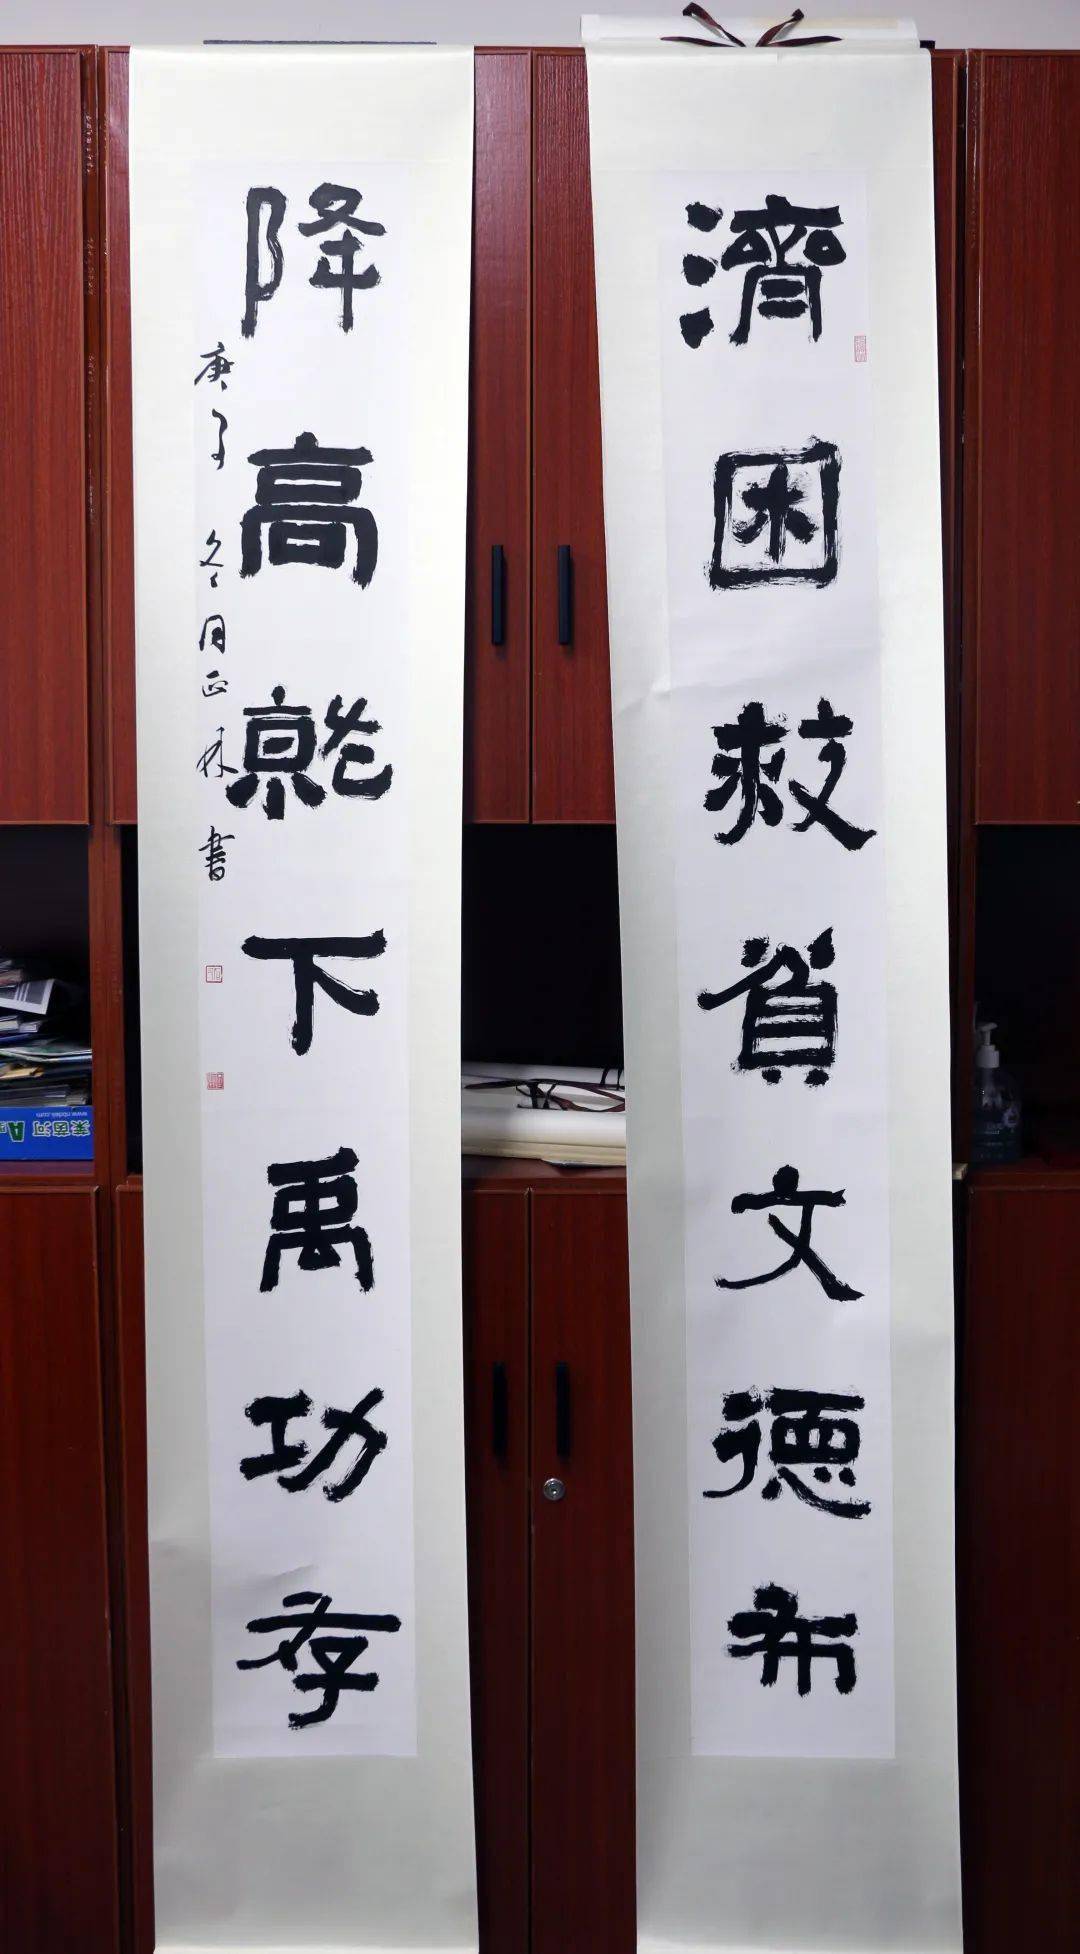 濟困救貧文德布
降高就下禹功存
庚子冬月正林書
莱茵河